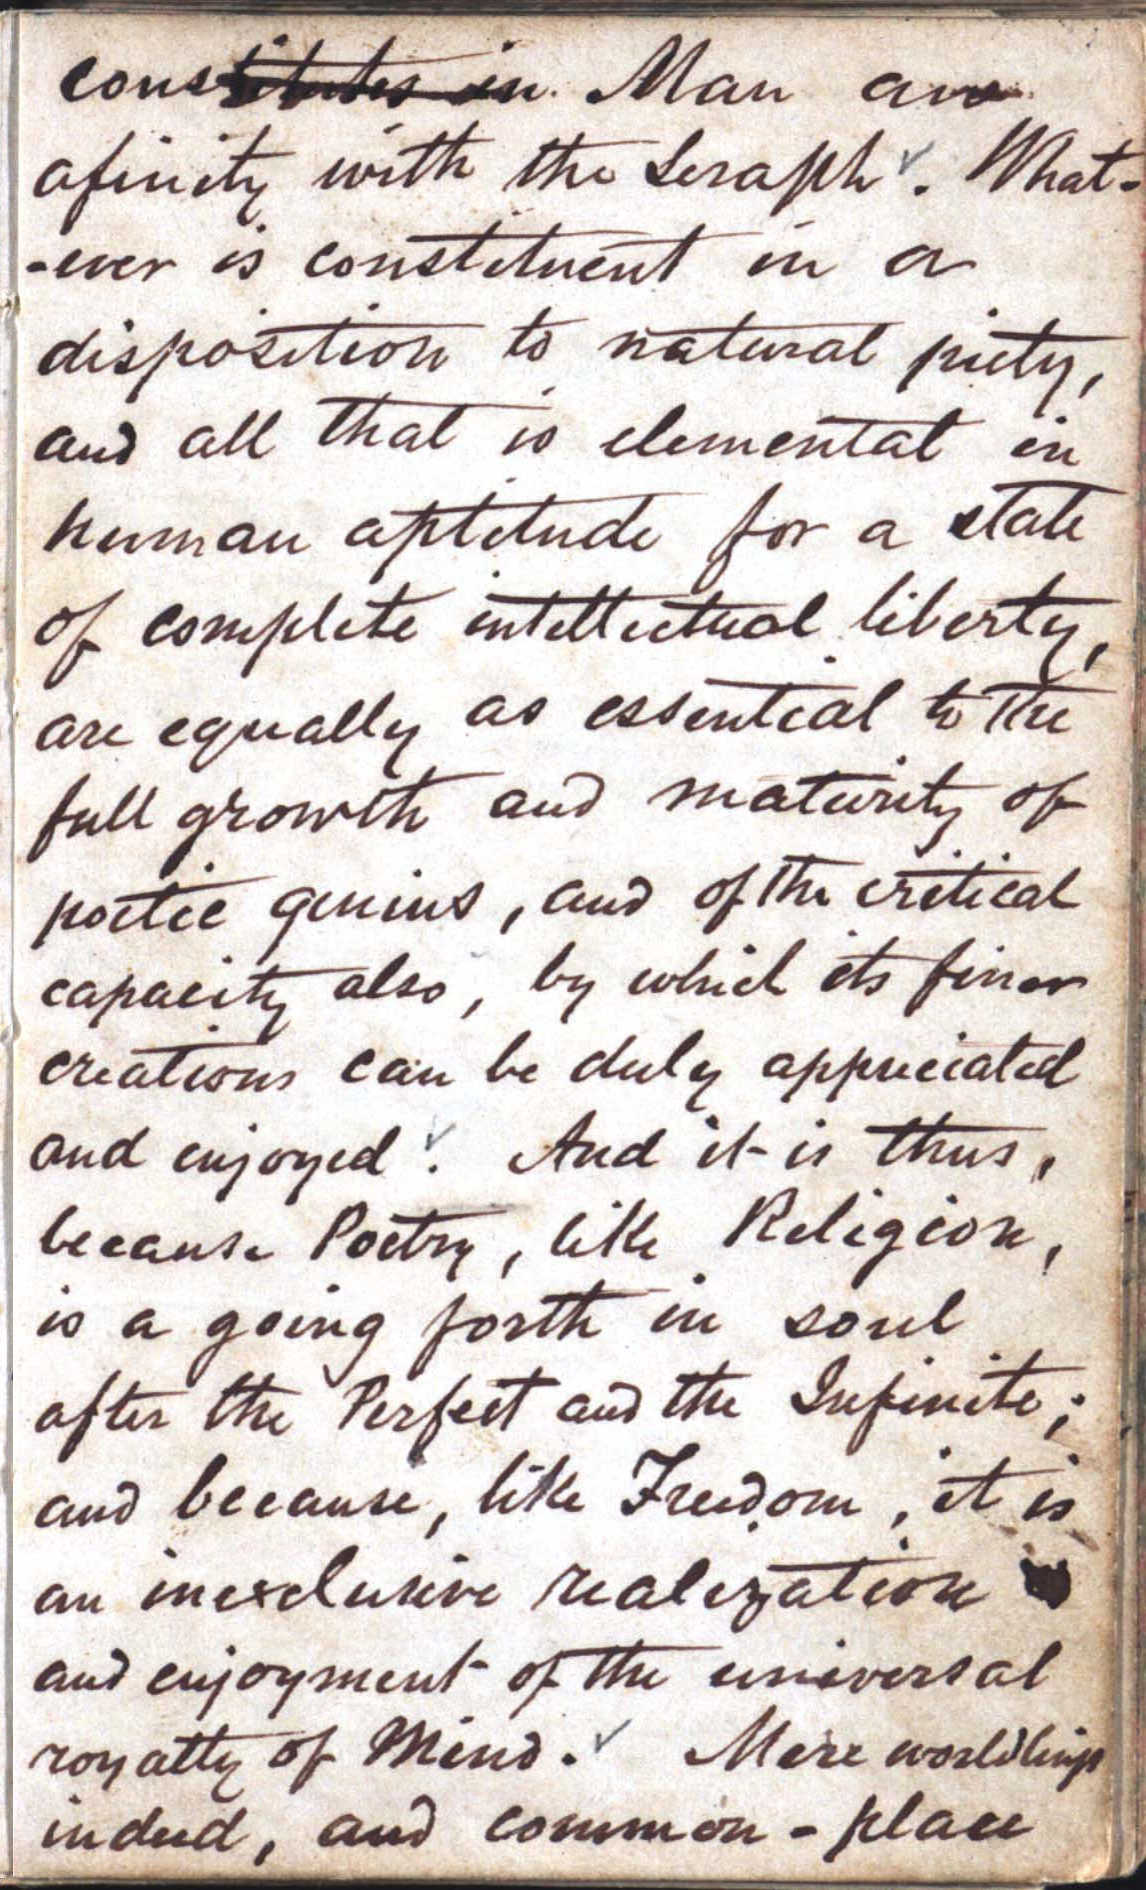 constitutes in Man an
afinity with the Seraph. What-
-ever is constituent in a
disposition to natural piety,
and all that is elemental in
human aptitude for a state
of complete intellectual liberty,
are equally as essential to the
full growth and maturity of
poetic genius, and of the critical
capacity also, by which its finer
creations can be duly appreciated
and enjoyed. And it is thus,
because Poetry, like Religion,
is a going forth in soul
after the Perfect and the Infinite;
and because, like Freedom, it is
an inexclusive realization
and enjoyment of the universal
royalty of Mind. Mere worldlings
indeed, and common-place